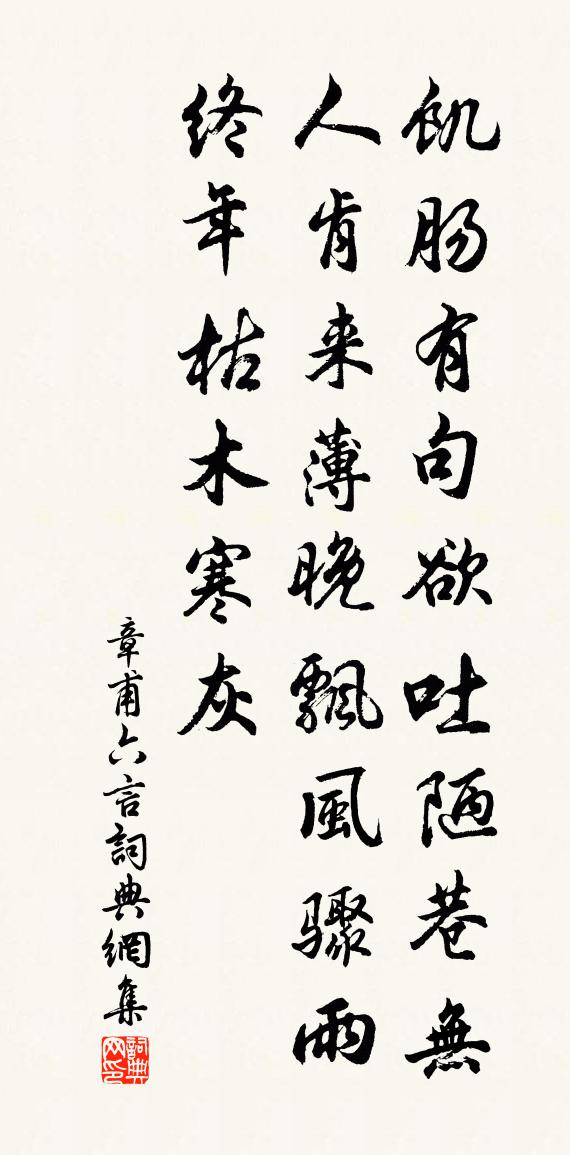 飢腸有句欲吐陋巷無
人肯来薄晚飄風驟雨
终年枯木寒灰
章甫六言詞典網集
詞典网印